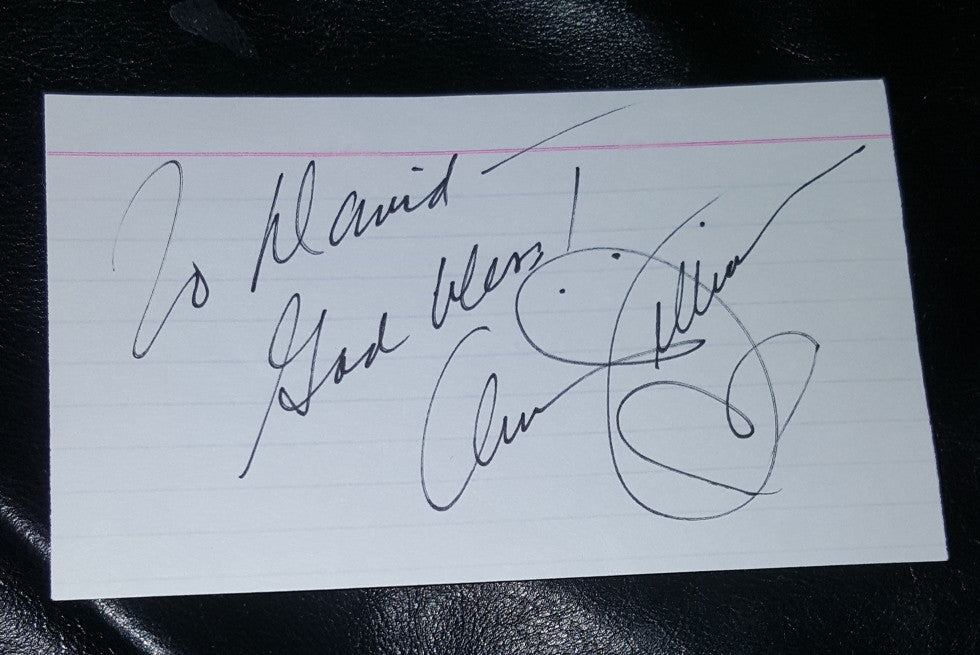 To David
God bless!
Ann Jillian